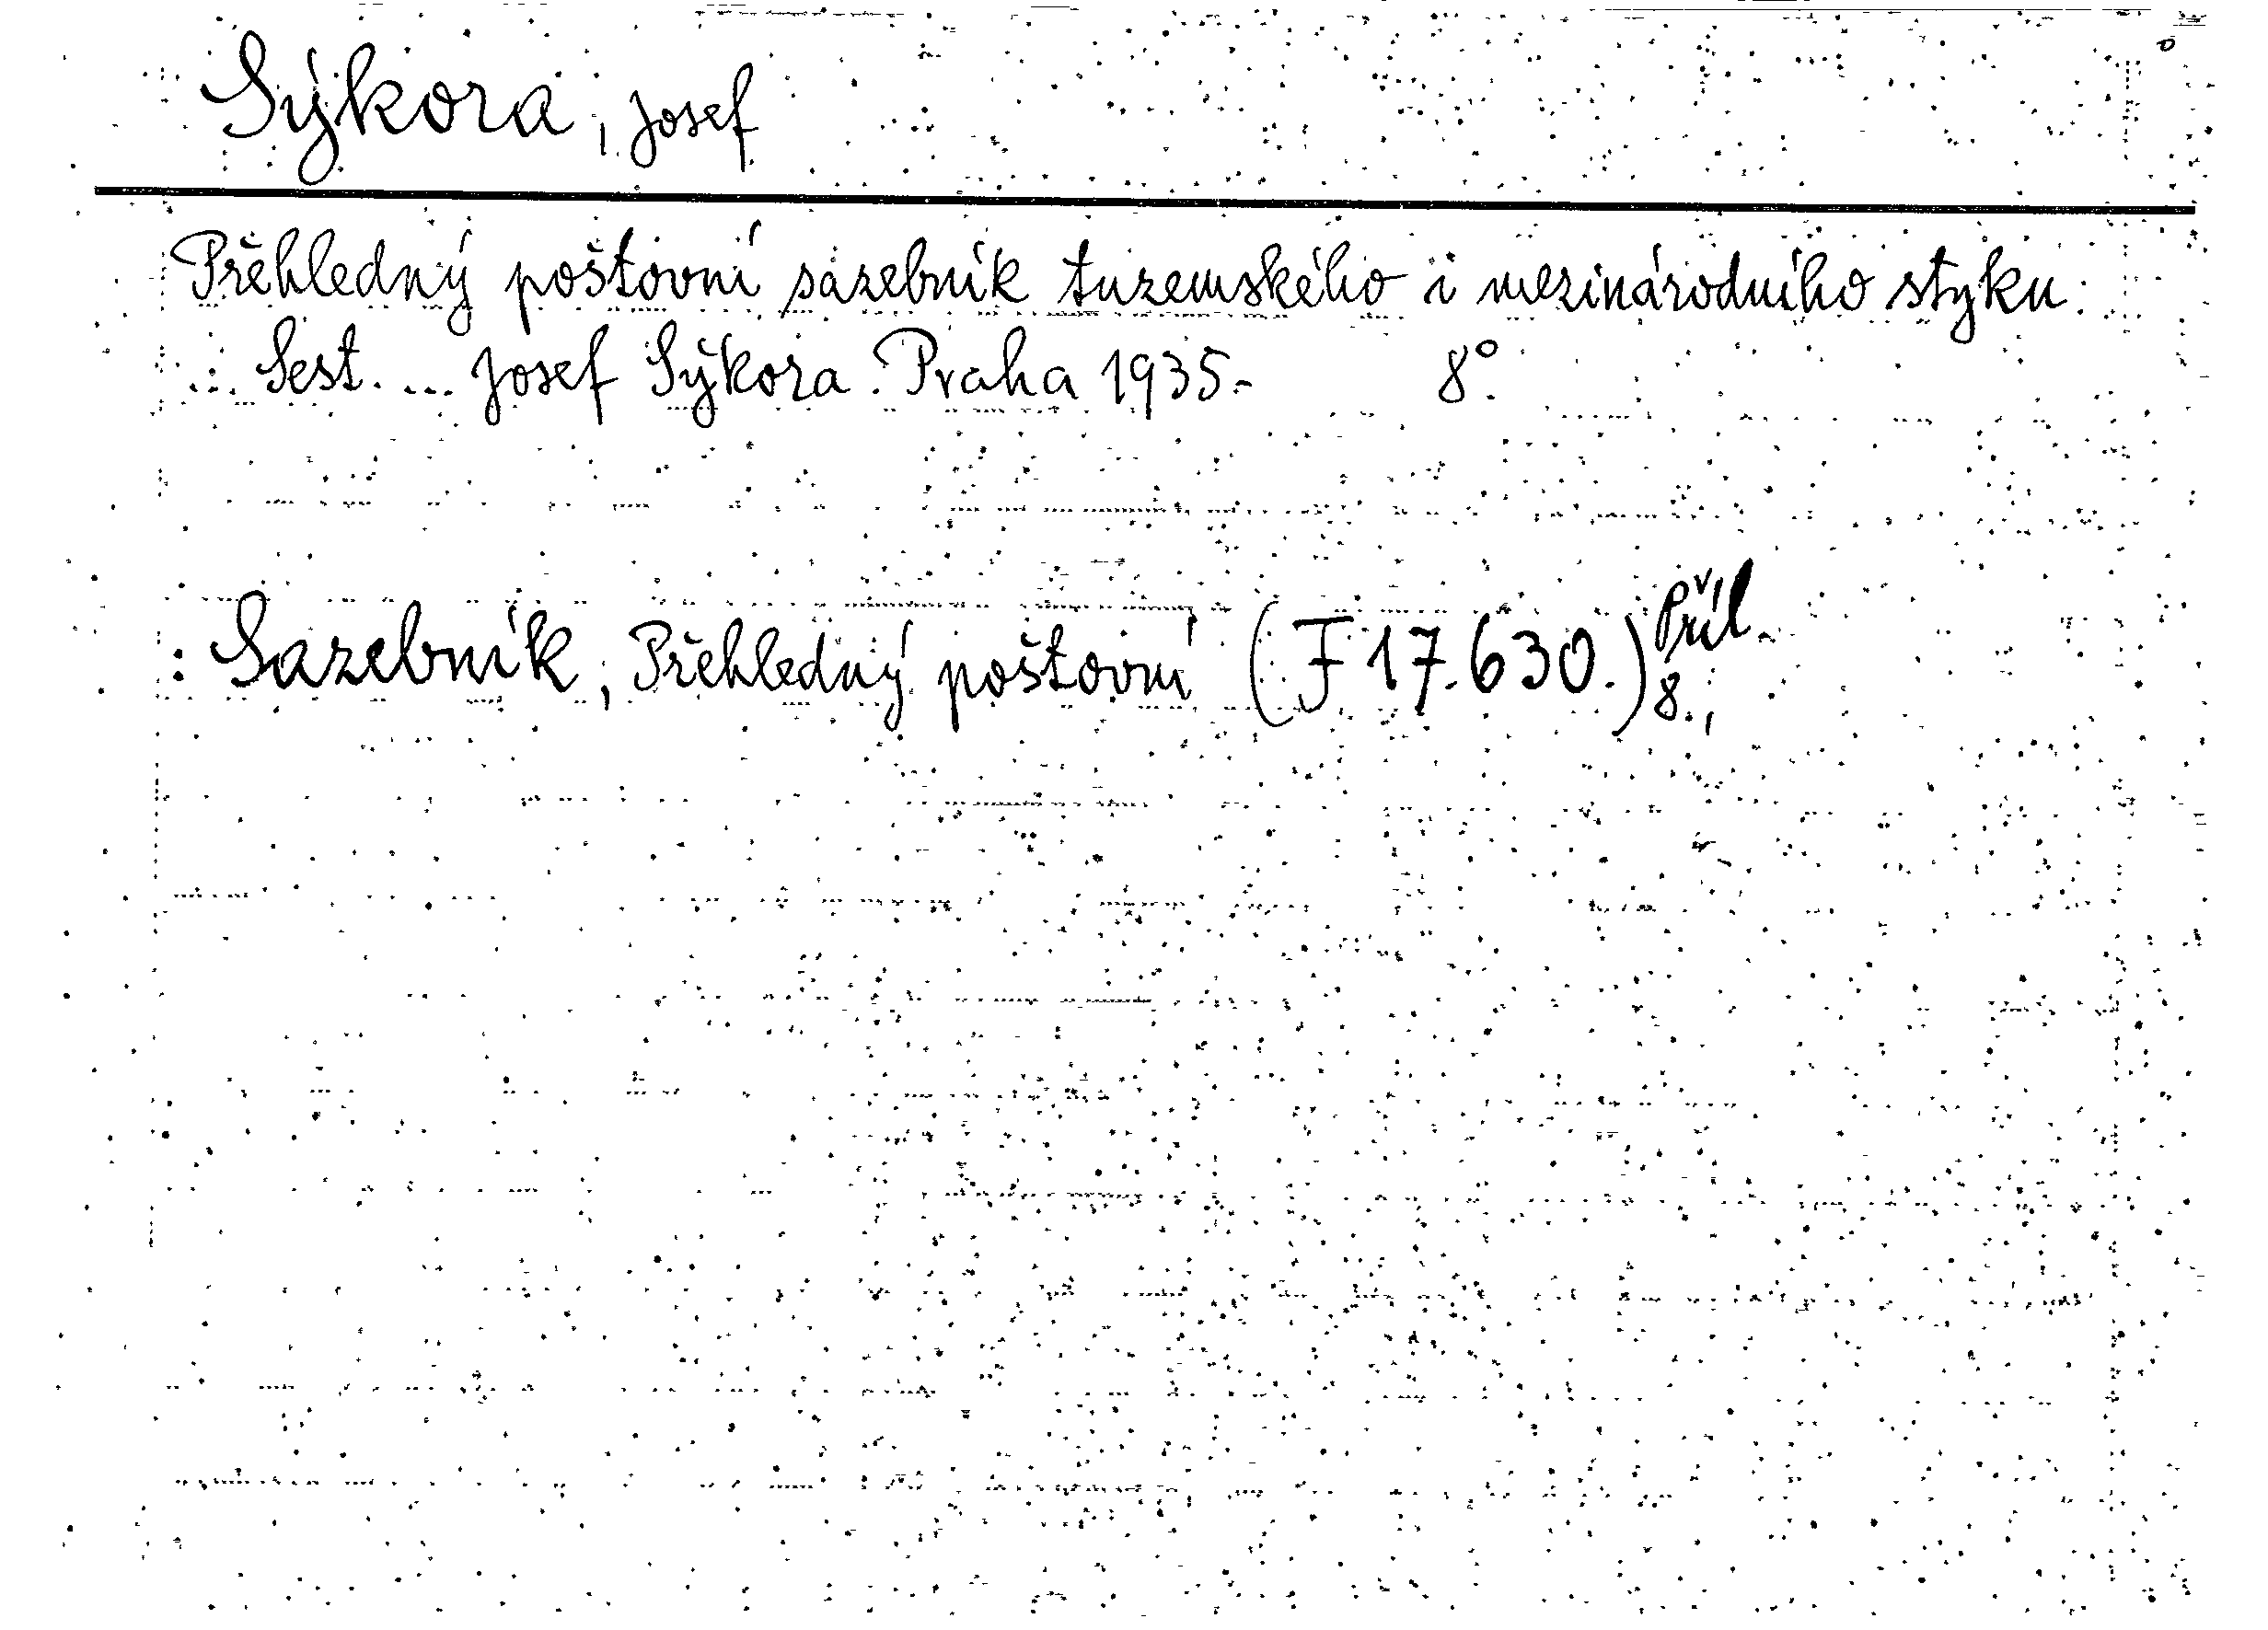 Sýkora, Josef
Přehledný poštovní sazebník tuzemského i mezinárodního styku.
... Sest. ... Josef Sýkora. Praha 1935.- 8°.
: Sazebník, Přehledný poštovní (F 17.630.) Příl. 8.